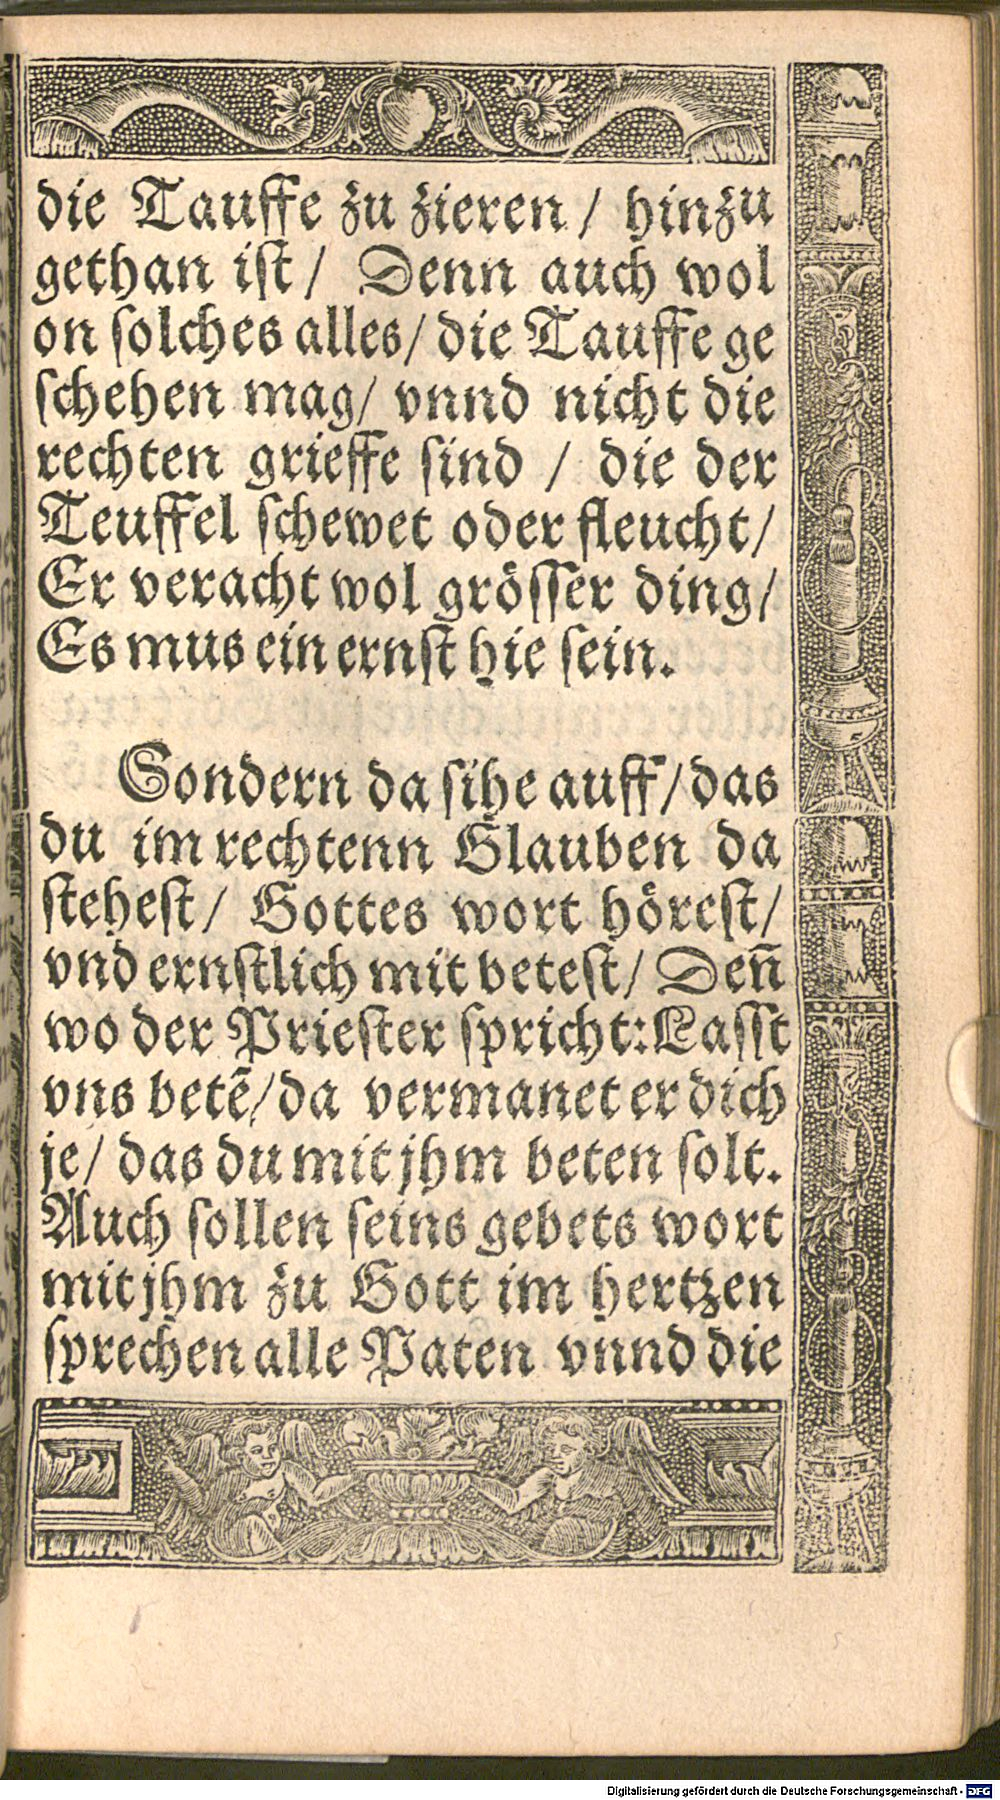 die Tauffe zu zieren / hinzu
gethan ist / Denn auch wol
on solches alles / die Tauffe ge
schehen mag / vnnd nicht die
rechten grieffe sind / die der
Teuffel schewet oder fleucht /
Er veracht wol grösser ding /
Es mus ein ernst hie sein.
Sondern da sihe auff / das
du im rechtenn Glauben da
stehest / Gottes wort hörest /
vnd ernstlich mit betest / Den̄
wo der Priester spricht: Lasst
vns betē / da vermanet er dich
je / das du mit jhm beten solt.
Auch sollen seins gebets wort
mit jhm zu Gott im hertzen
sprechen alle Paten vnnd die
Digitalisierung gefördert durch die Deutsche Forschungsgemeinschaft - DFG